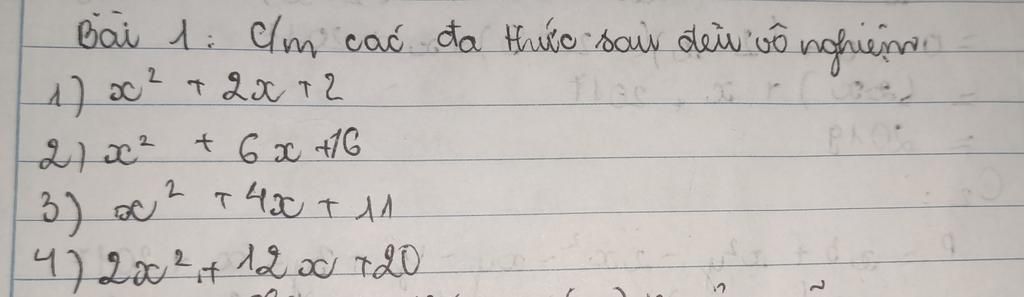 Bài 1: C/m các đa thức sau đều vô nghiệm
1) x² + 2x + 2
2) x² + 6x + 16
3) x² + 4x + 11
4) 2x² + 12x + 20